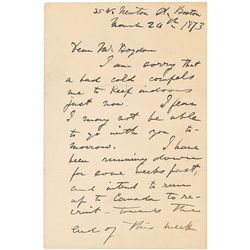 Newton St, Boston
March 24th 1873
Dear Mr. Bogdon
I am sorry that
a bad cold compels
me to keep indoors
just now. I fear
I may not be able
to go with you to-
morrow. I have
been running down
for some weeks past,
and intend to run
up to Canada to re-
cruit - towards the
end of this week